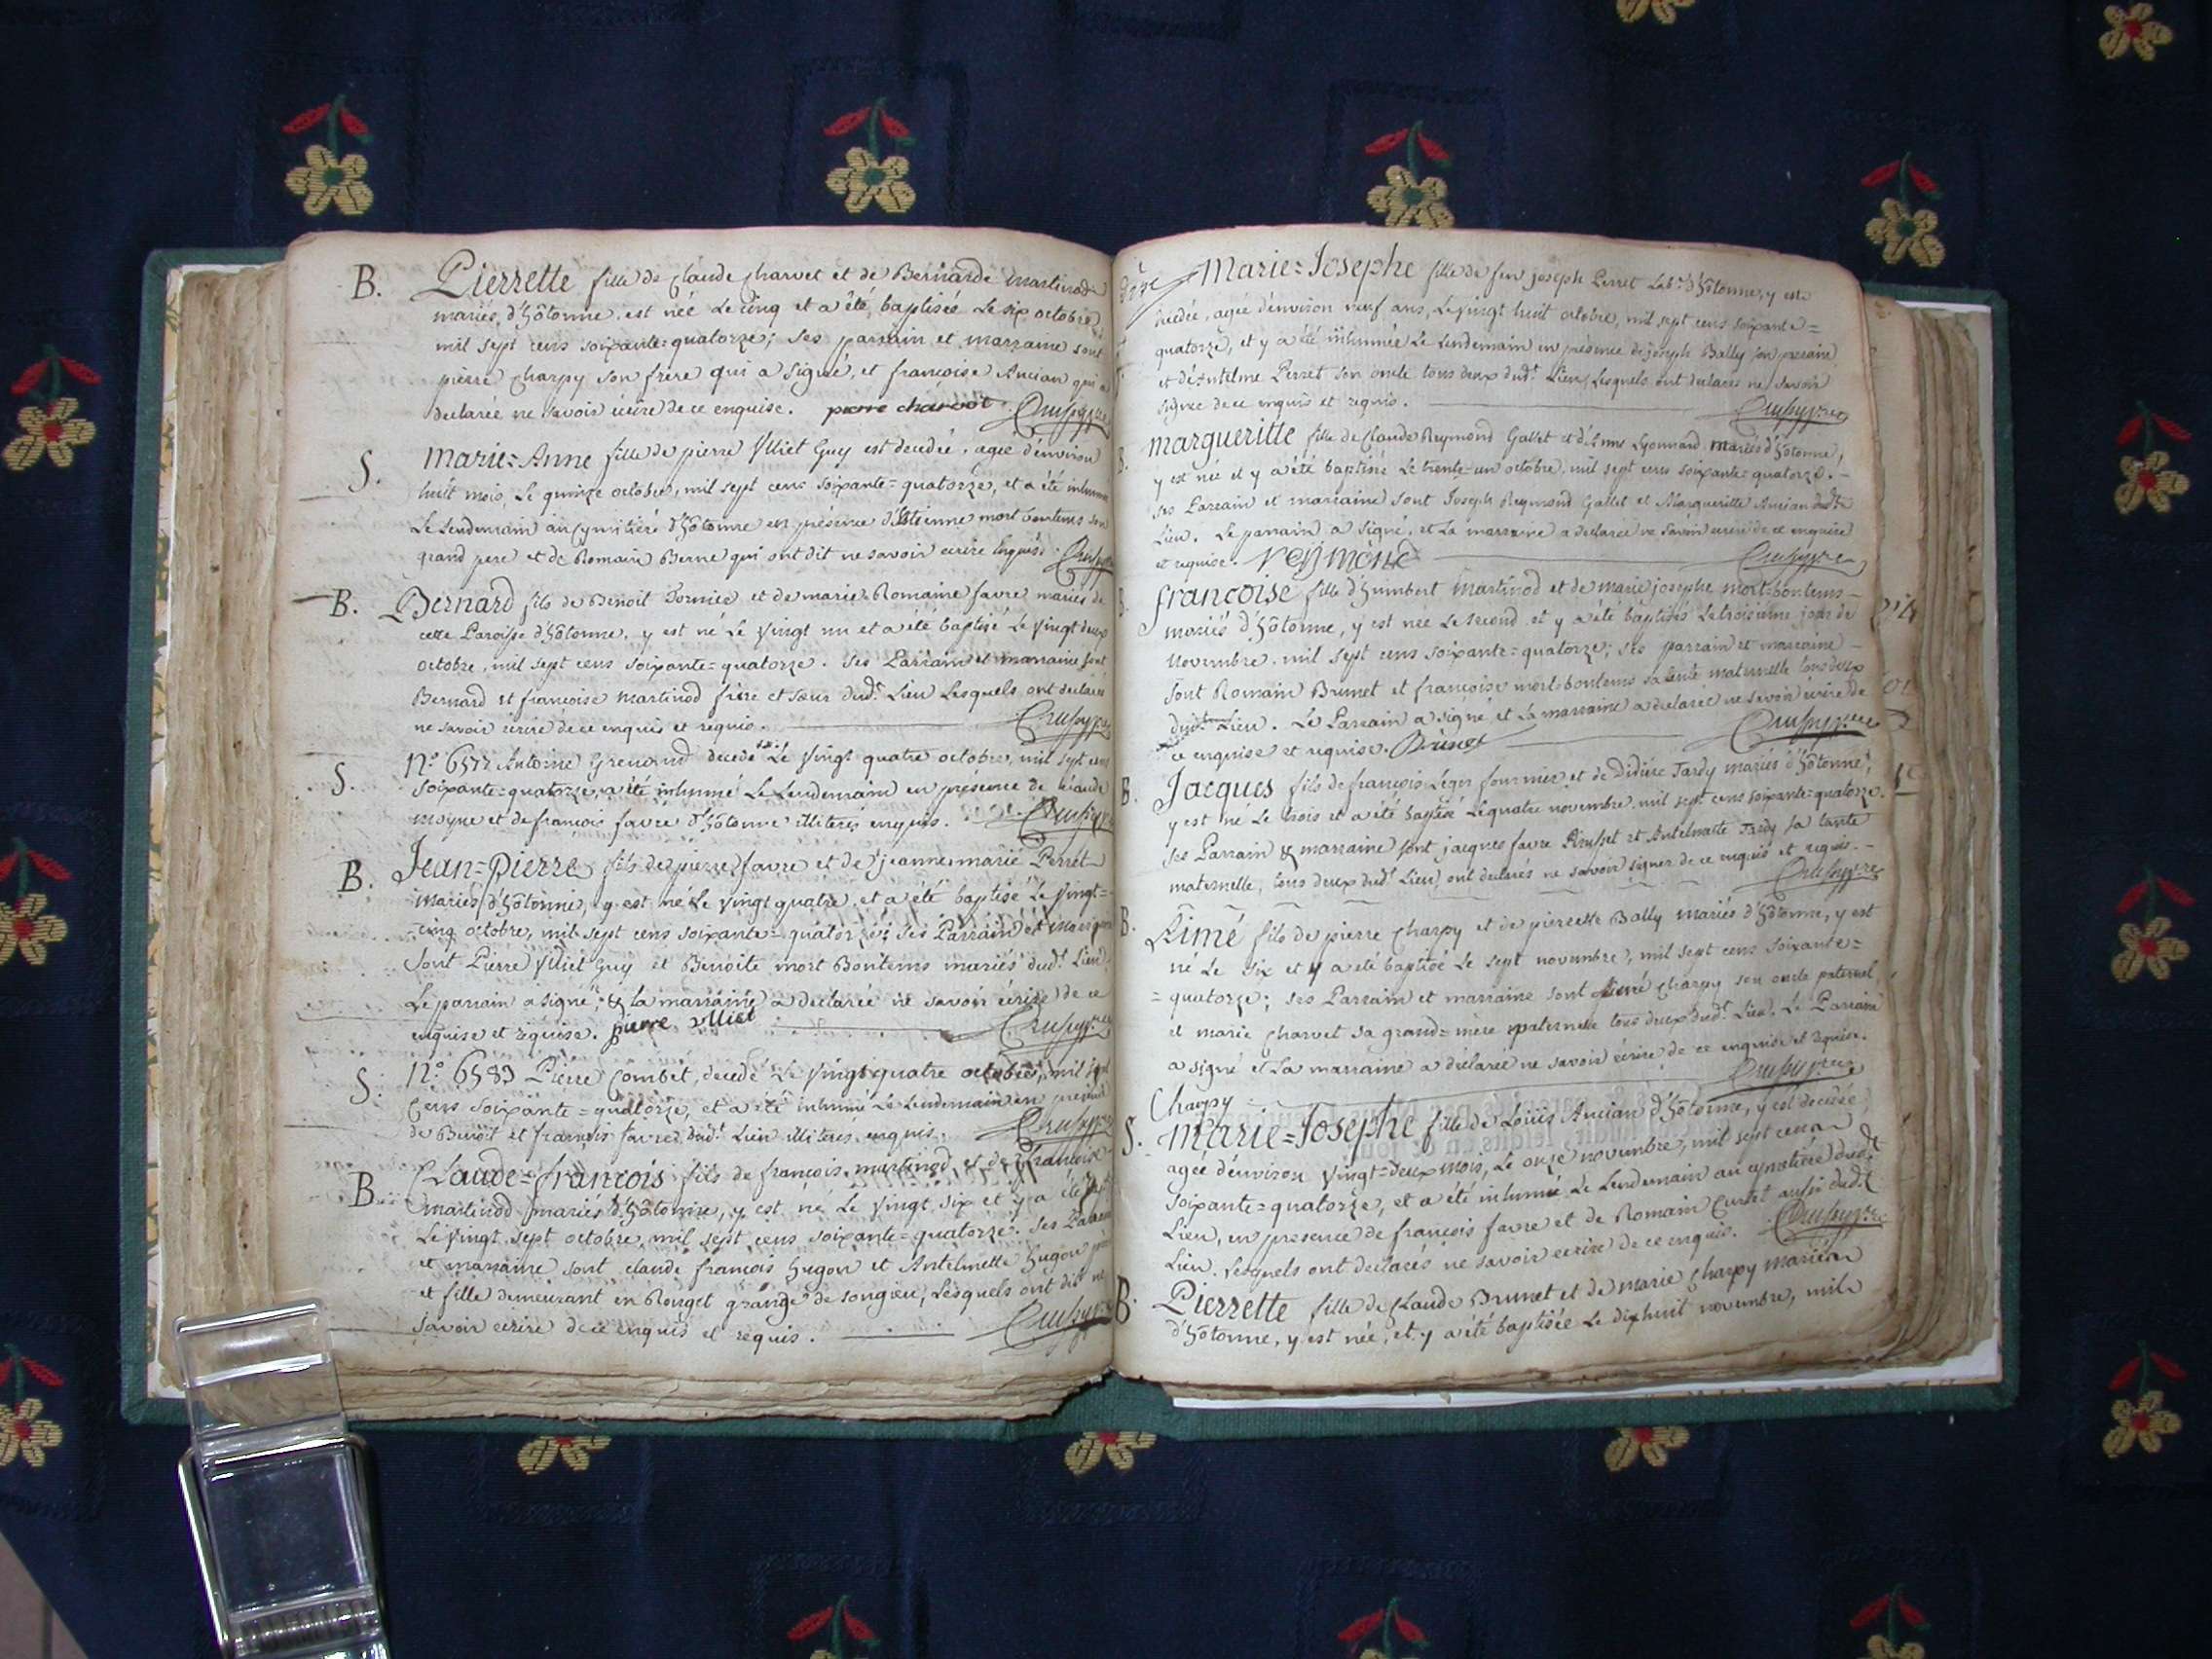 B. Pierrette fille de Claude Charvet et de Bernarde Martinod
mariés d'hôtonne est née le cinq et a été baptisée le six octobre
mil sept cens soixante=quatorze; ses parrain et marraine sont
pierre Charpy son frère qui a signé, et françoise Ancian qui a
declarée ne savoir écrire de ce enquise. pierre charvet
S. Marie=Anne fille de pierre Ulliet Guy est decedée, agée d'environ
huit mois, Le quinze octobre, mil sept cens soixante=quatorze, et a été inhumée
Le Lendemain au cymitière d'hôtonne en présence d'Etienne mort bontems son
grand pere et de Romain Berne qui ont dit ne savoir écrire enquis.
B. Bernard fils de Benoit fornier et de marie=Romaine favre mariés de
cette Paroisse d'hôtonne, y est né Le vingt un et a été baptisé Le vingt deux
octobre, mil sept cens soixante=quatorze. ses Parrain et marraine sont
Bernard et françoise Martinod frère et sœur dud.t Lieu Lesquels ont declarés
ne savoir écrire de ce enquis et requis.
S. N.o 6577 Antoine Grenand decedé Le vingt quatre octobre, mil sept cens
soixante=quatorze, a été inhumé Le Lendemain en présence de Claude
moyne et de françois favre d'hôtonne illiterés enquis.
B. Jean=Pierre fils de pierre favre et de jeanne marie Perret
mariés d'hôtonne, y est né Le vingt quatre, et a été baptisé Le vingt=
cinq octobre, mil sept cens soixante=quatorze; ses Parrain et marraine
sont Pierre Ulliet Guy et Benoite mort Bontems mariés dud.t Lieu.
Le parrain a signé, & la marraine a declarée ne savoir écrire de ce
enquise et requise. pierre ulliet
S. N.o 6583 Pierre Combet, decedé Le vingt quatre octobre, mil sept
cens soixante=quatorze, et a été inhumé Le Lendemain en présence
de Benoit et françois favre dud.t Lieu illiterés enquis.
B. Claude=françois fils de françois martinod et de françoise
martinod mariés d'hôtonne, y est né Le vingt six et y a été bapt
Le vingt sept octobre mil sept cens soixante=quatorze. ses Parrain
et marraine sont claude françois hugon et Antelmette hugon père
et fille demeurant en Rouget grange de songieu, Lesquels ont dit ne
savoir écrire de ce enquis et requis.
Marie=Josephe fille de feu joseph Perret Lab.r d'hôtonne, y est
decedée, agée d'environ neuf ans, Le vingt huit octobre, mil sept cens soixante=
quatorze, et y a été inhumée Le Lendemain en présence de joseph Bally son parrain
et d'Antelme Perret son oncle tous deux dud.t Lieu, Lesquels ont declarés ne savoir
signer de ce enquis et requis.
Margueritte fille de Claude Reymond Gallet et d'Anne Lyonnard mariés d'hôtonne,
y est née et y a été baptisée Le trente=un octobre, mil sept cens soixante=quatorze.
ses Parrain et marraine sont Joseph Reymond Gallet et Margueritte Ancian dud.t
Lieu. Le parrain a signé, et La marraine a declarée ne savoir écrire de ce enquise
et requise. reymond
françoise fille d'humbert Martinod et de marie josephe mort=bontems
mariés d'hôtonne, y est née Le second et y a été baptisée Le troisieme jour de
Novembre, mil sept cens soixante=quatorze; ses parrain et marraine
sont Romain Brunet et françoise mort=bontems sa tante maternelle tous deux
dud.t Lieu. Le Parrain a signé, et la marraine a declarée ne savoir écrire de
ce enquise et requise. Brunet
B. Jacques fils de françois Léger fournier et de Didière Tardy mariés d'hôtonne,
y est né Le trois et a été baptisé Le quatre novembre, mil sept cens soixante=quatorze.
ses Parrain & marraine sont jacques favre Brusset et Antelmette Tardy sa tante
maternelle, tous deux dud.t Lieu, ont declarés ne savoir signer de ce enquis et requis.
B. Aimé fils de pierre Charpy et de pierrette Bally mariés d'hôtonne, y est
né Le six et y a été baptisé Le sept novembre, mil sept cens soixante=
=quatorze; ses Parrain et marraine sont Aimé Charpy son oncle paternel
et marie Charvet sa grand=mère paternelle tous deux dud.t Lieu. Le Parrain
a signé et La marraine a declarée ne savoir écrire de ce enquise et requise.
Charpy
S. Marie=Josephe fille de Loüis Ancian d'hôtonne, y est decedée
agée d'environ vingt=deux mois, Le onze novembre, mil sept cens
soixante=quatorze, et a été inhumée Le Lendemain au cymetière dud.t
Lieu, en presence de françois favre et de Romain Curtet aussi dud.t
Lieu. Lesquels ont declarés ne savoir ecrire de ce enquis.
B. Pierrette fille de Claude Brunet et de Marie Charpy mariés
d'hôtonne, y est née, et y a été baptisée Le dixhuit novembre, mil